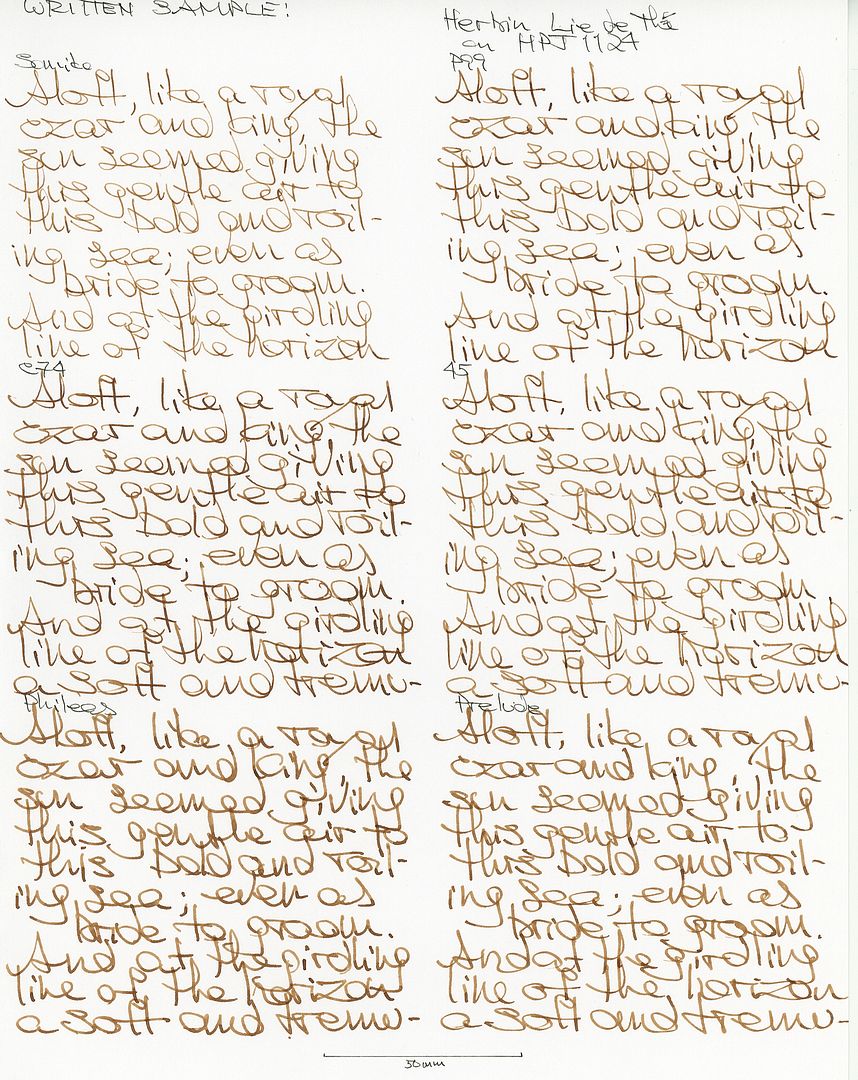 WRITTEN SAMPLE:
Herbin Lie de Thé
on HPJ1124
Sonnito
Aloft, like a royal
czar and king, the
sun seemed giving
this gentle air to
this bold and roil-
ing sea; even as
bride to groom.
And at the girdling
line of the horizon
P99
Aloft, like a royal
czar and king, the
sun seemed giving
this gentle air to
this bold and roil-
ing sea; even as
bride to groom.
And at the girdling
line of the horizon
e74
Aloft, like a royal
czar and king, the
sun seemed giving
this gentle air to
this bold and roil-
ing sea; even as
bride to groom.
And at the girdling
line of the horizon
a soft and tremu-
45
Aloft, like a royal
czar and king, the
sun seemed giving
this gentle air to
this bold and roil-
ing sea; even as
bride to groom.
And at the girdling
line of the horizon
a soft and tremu-
Phileas
Aloft, like a royal
czar and king, the
sun seemed giving
this gentle air to
this bold and roil-
ing sea; even as
bride to groom.
And at the girdling
line of the horizon
a soft and tremu-
Prelude
Aloft, like a royal
czar and king, the
sun seemed giving
this gentle air to
this bold and roil-
ing sea; even as
bride to groom.
And at the girdling
line of the horizon
a soft and tremu-
50mm